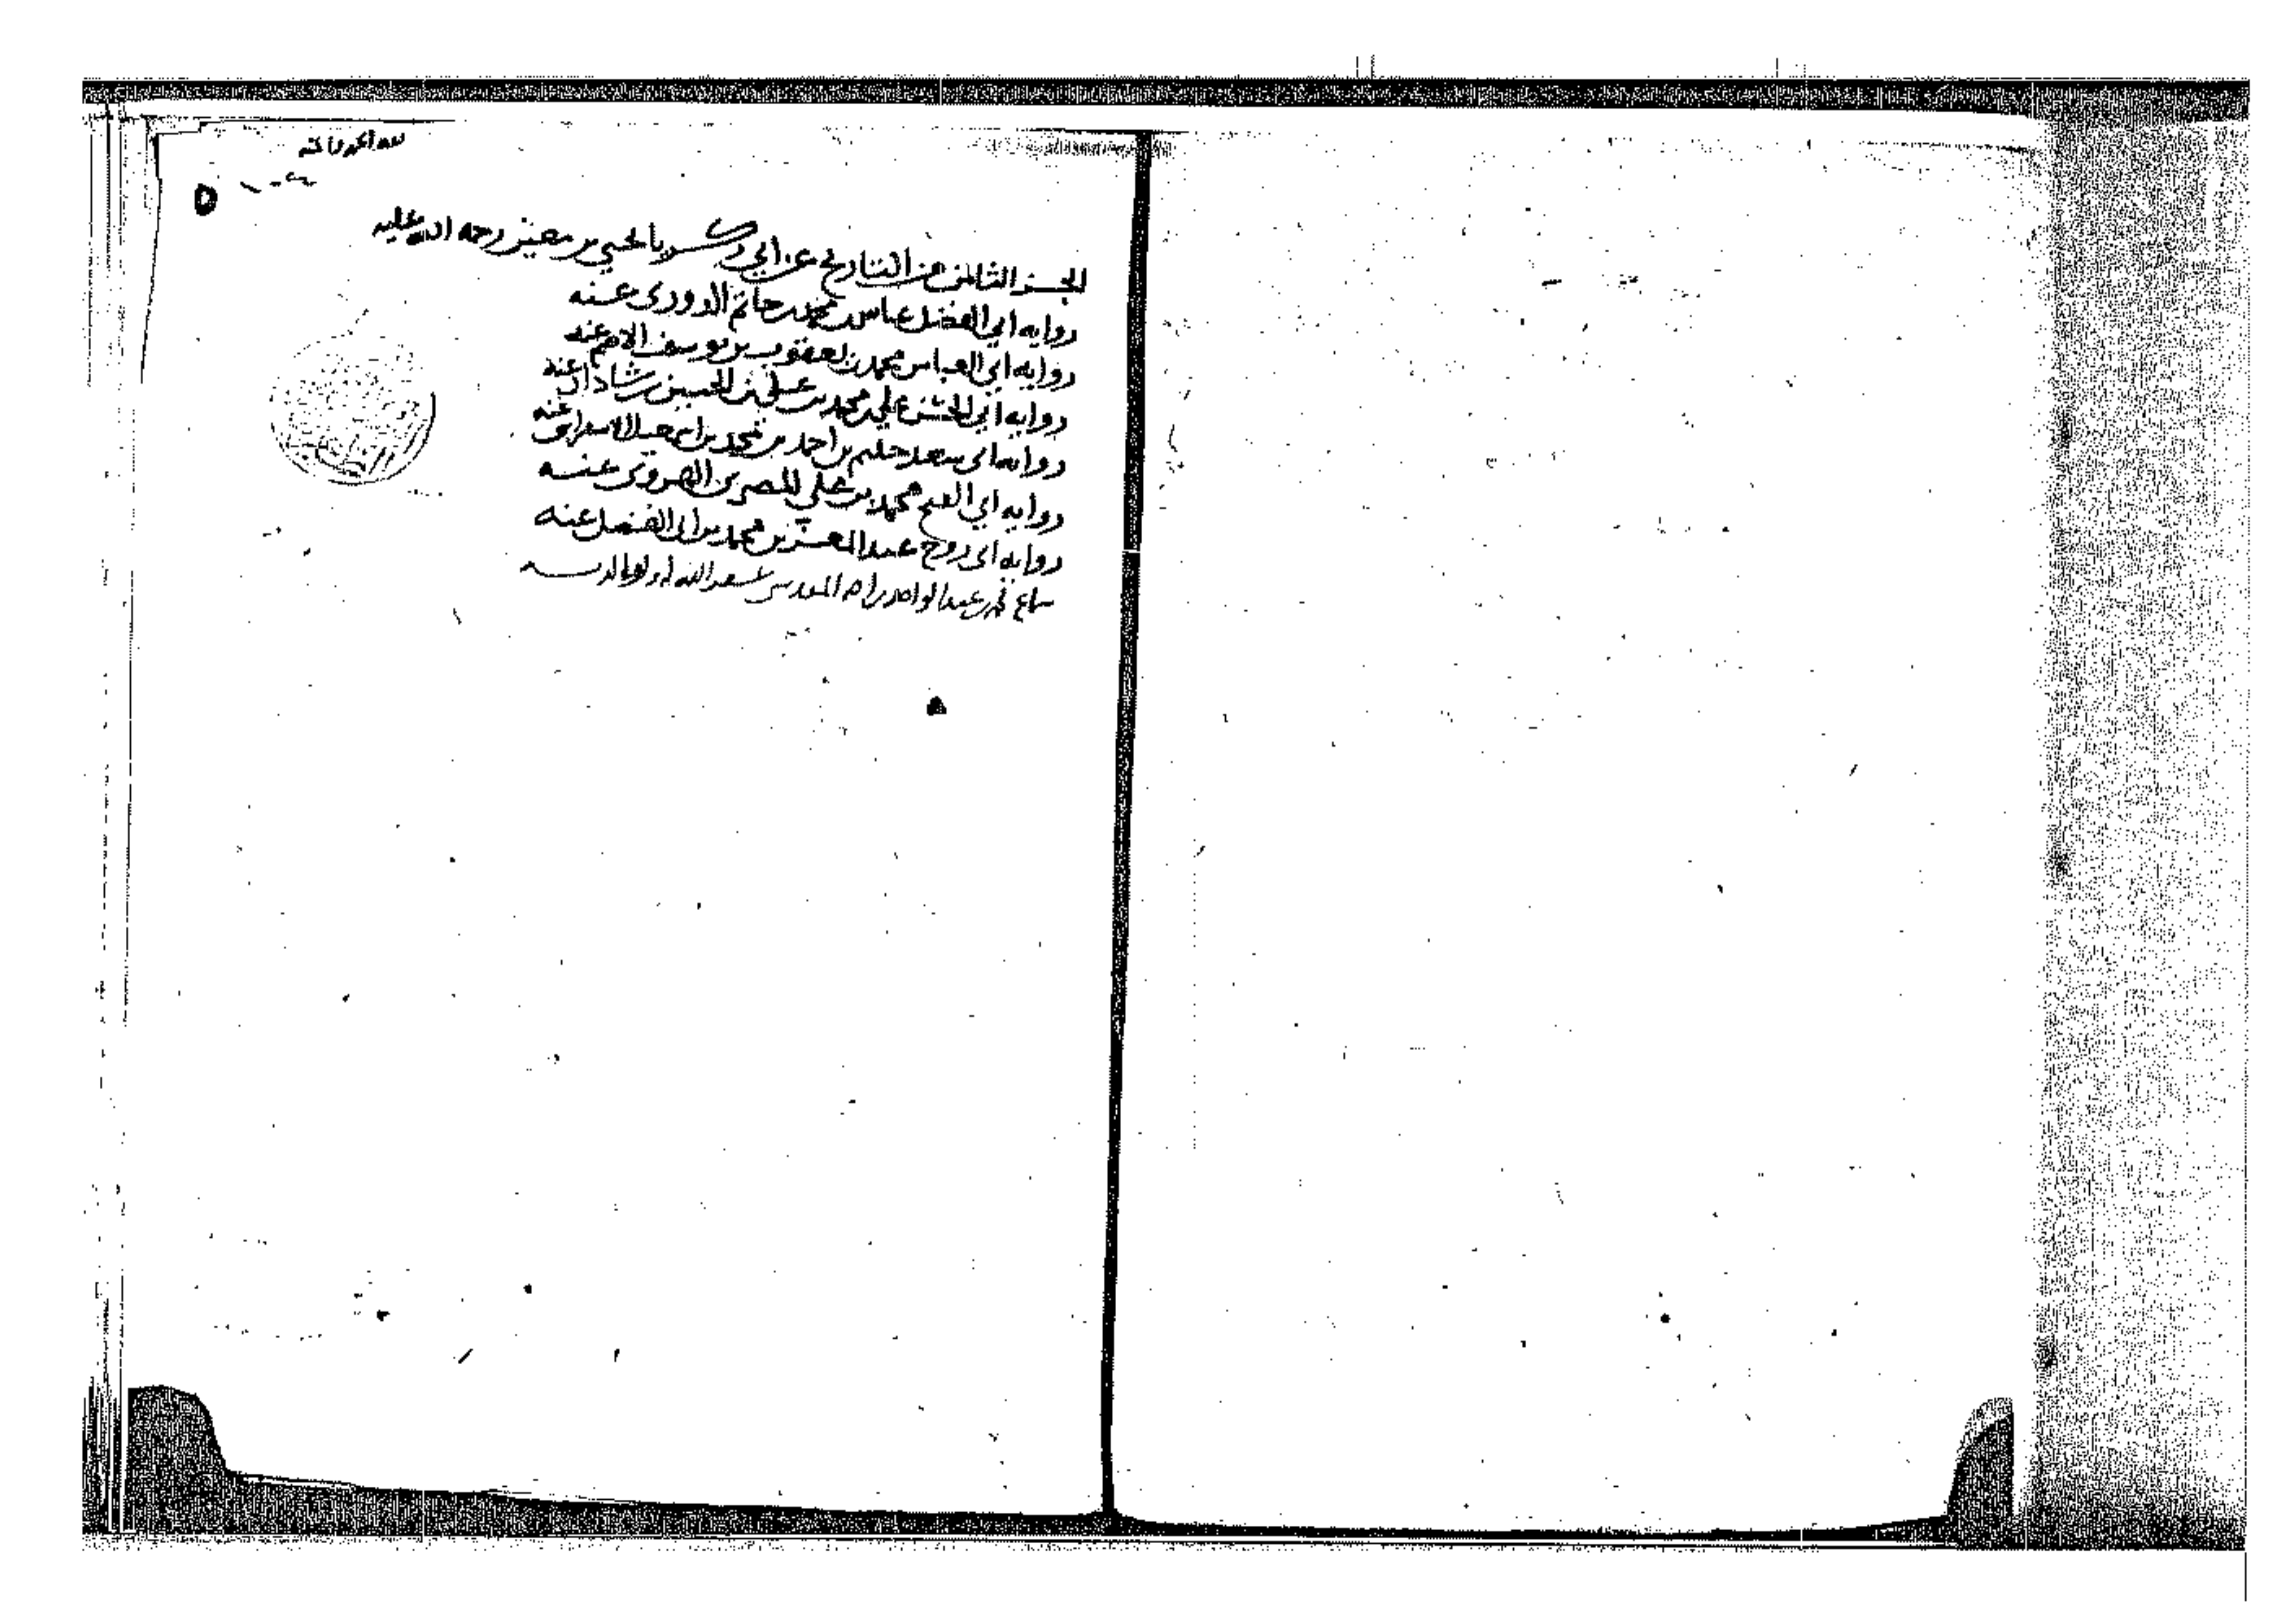 الجزء الثامن من التاريخ عن أبي زكريا يحيى بن معين رحمه الله عليه
روايه ابي الفضل عباس بن محمد بن حاتم الدورى عنه
روايه ابي العباس محمد بن يعقوب بن يوسف الاصم عنه
روايه ابي الحسن علي بن محمد بن علي بن الحسين بن شاذان عنه
روايه ابى سعد حكيم بن احمد بن محمد بن الاسفراينى عنه
روايه ابي الفتح محمد بن علي المصرى الهروى عنه
روايه ابى روح عبد المعز بن محمد بن ابى الفضل عنه
سماع محمد بن عبد الواحد بن احمد المقدسى